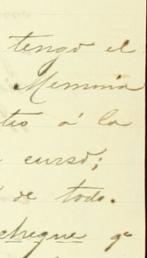 tengo el
Memoria
tes á la
curso;
de todo.
cheque qe